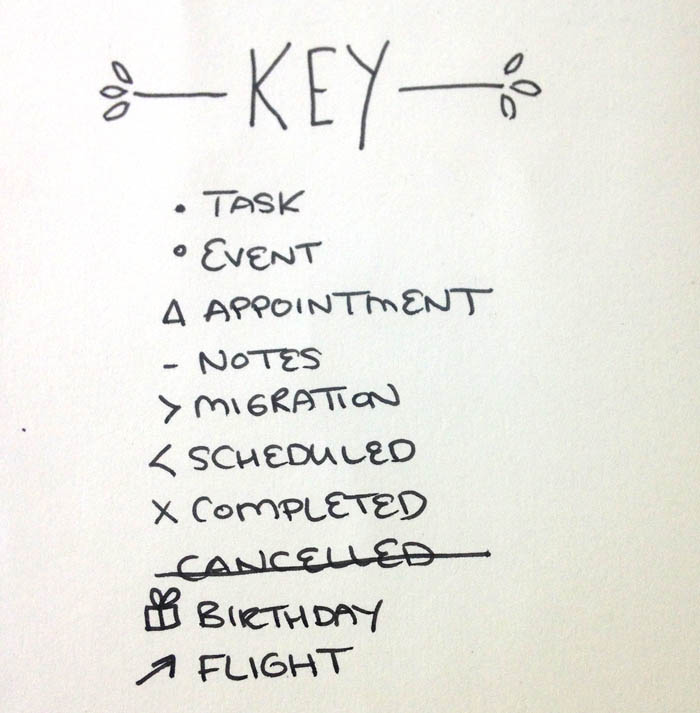 KEY
• TASK
° EVENT
Δ APPOINTMENT
- NOTES
> MIGRATION
< SCHEDULED
X COMPLETED
CANCELLED
BIRTHDAY
↗ FLIGHT